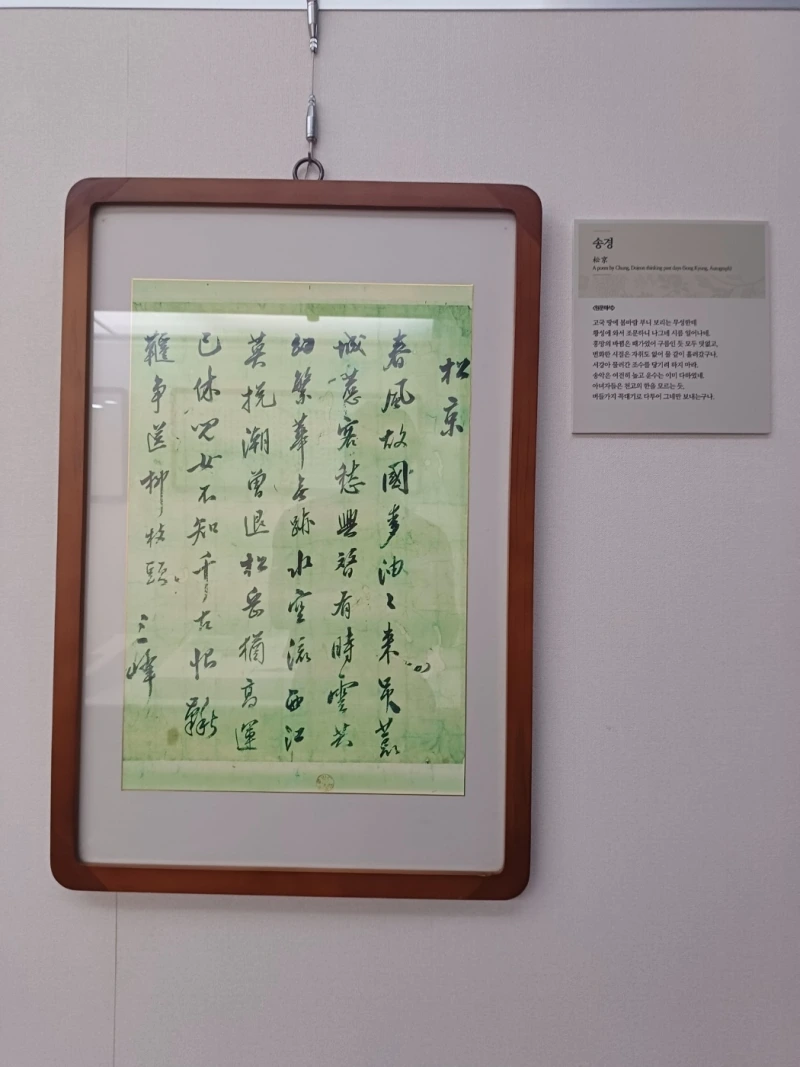 松京
春風故國麥油〻來吊荒
城惹客愁興替有時雲共
幻繁華無跡水空流西江
莫挽潮曾退松岳猶高運
已休兒女不知千古恨鞦
韆爭送柳枝頭
三峰
송경
松京
A poem by Chung, Dojeon thinking past days Song Kyung, Autograph)
고국 땅에 봄바람 부니 보리는 무성한데
황성에 와서 조문하니 나그네 시름 일어나네.
흥망의 바뀜은 때가 있어 구름인 듯 모두 덧없고,
번화한 시절은 자취도 없어 물 같이 흘러갔구나.
서강아 물러간 조수를 당기려 하지 마라.
송악은 여전히 높고 운수는 이미 다하였네.
아녀자들은 천고의 한을 모르는 듯,
버들가지 꼭대기로 다투어 그네만 보내는구나.